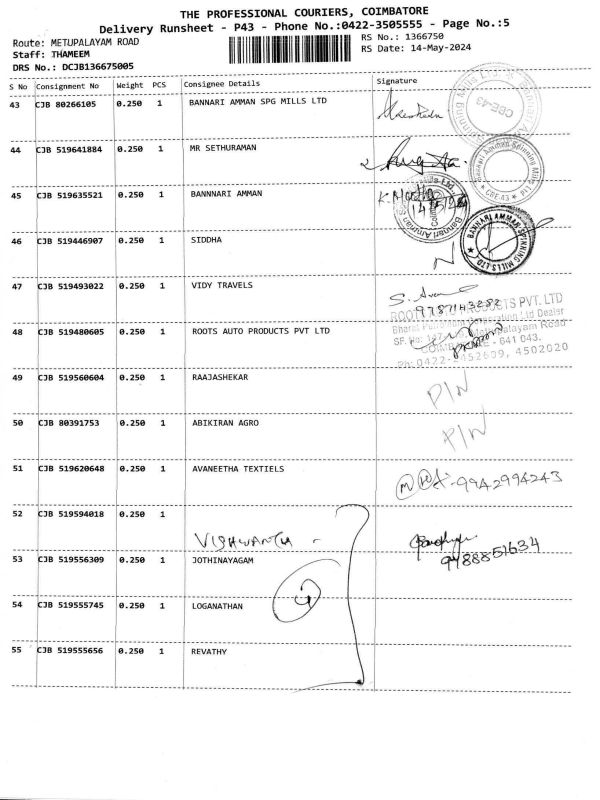 THE PROFESSIONAL COURIERS, COIMBATORE
Delivery Runsheet - P43 - Phone No.:0422-3505555 - Page No.:5
Route: METUPALAYAM ROAD
RS No.: 1366750
Staff: THAMEEM
RS Date: 14-May-2024
DRS No.: DCJB136675005
S No Consignment No Weight PCS Consignee Details Signature
43 CJB 80266105 0.250 1 BANNARI AMMAN SPG MILLS LTD
CBE-43
44 CJB 519641884 0.250 1 MR SETHURAMAN
Bannari Amman Spinning Mills Ltd. * CBE43 *
45 CJB 519635521 0.250 1 BANNNARI AMMAN
46 CJB 519446907 0.250 1 SIDDHA
BANNARI AMMAN SPINNING MILLS LTD.
N
47 CJB 519493022 0.250 1 VIDY TRAVELS
9787143282
ROOTS AUTO PRODUCTS PVT. LTD
Bharat Petroleum Corporation Ltd Dealer
48 CJB 519480605 0.250 1 ROOTS AUTO PRODUCTS PVT LTD
COIMBATORE - 641 043.
Ph: 0422-2452609, 4502020
49 CJB 519560604 0.250 1 RAAJASHEKAR
P/N
50 CJB 80391753 0.250 1 ABIKIRAN AGRO
P/N
51 CJB 519620648 0.250 1 AVANEETHA TEXTIELS
9942994243
52 CJB 519594018 0.250 1
9488851634
53 CJB 519556309 0.250 1 JOTHINAYAGAM
54 CJB 519555745 0.250 1 LOGANATHAN
55 CJB 519555656 0.250 1 REVATHY